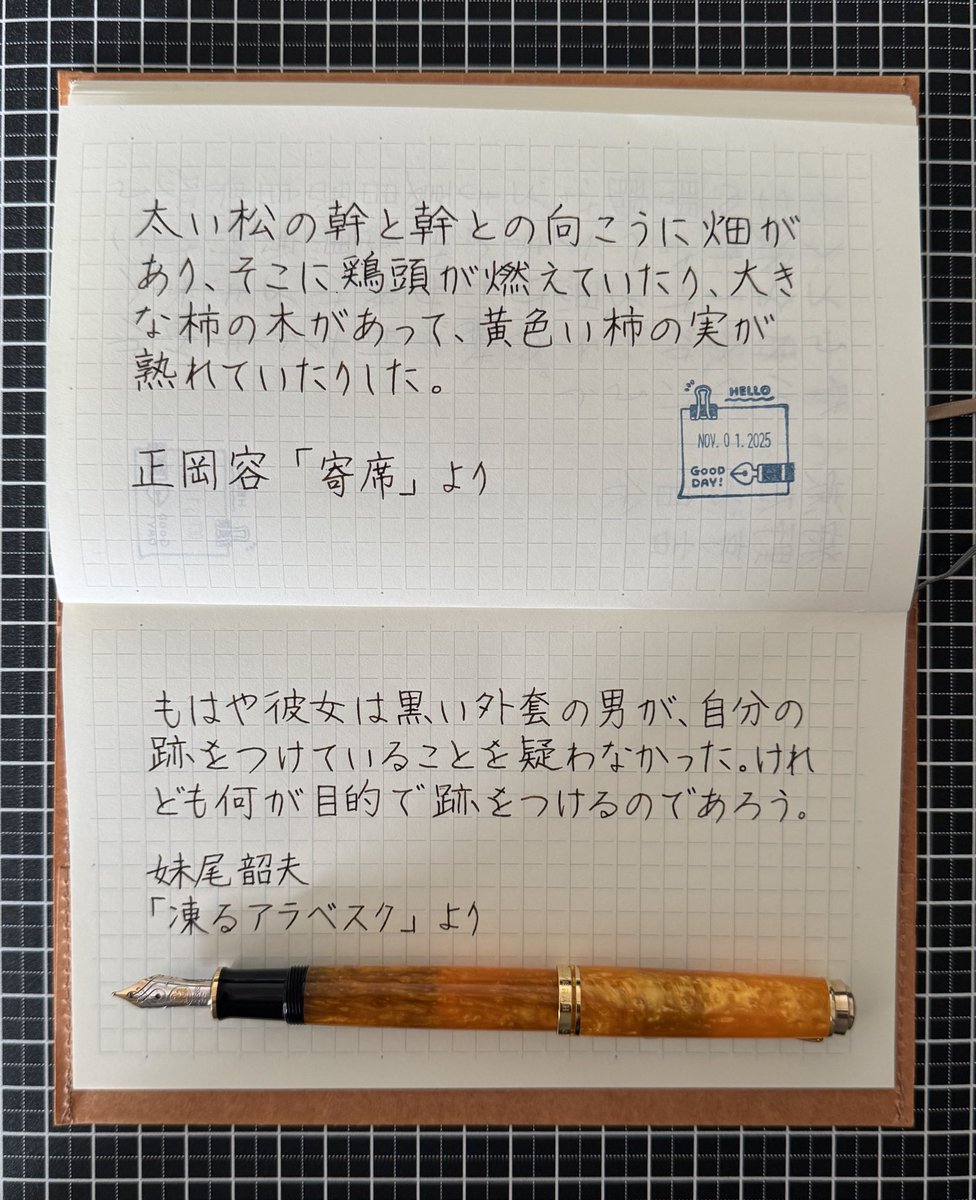 太い松の幹と幹との向こうに畑が
あり、そこに鶏頭が燃えていたり、大き
な柿の木があって、黄色い柿の実が
熟れていたりした。
HELLO
NOV. 01. 2025
GOOD
DAY!
正岡容「寄席」より
もはや彼女は黒い外套の男が、自分の
跡をつけていることを疑わなかった。けれ
ども何が目的で跡をつけるのであろう。
妹尾韶夫
「凍るアラベスク」より